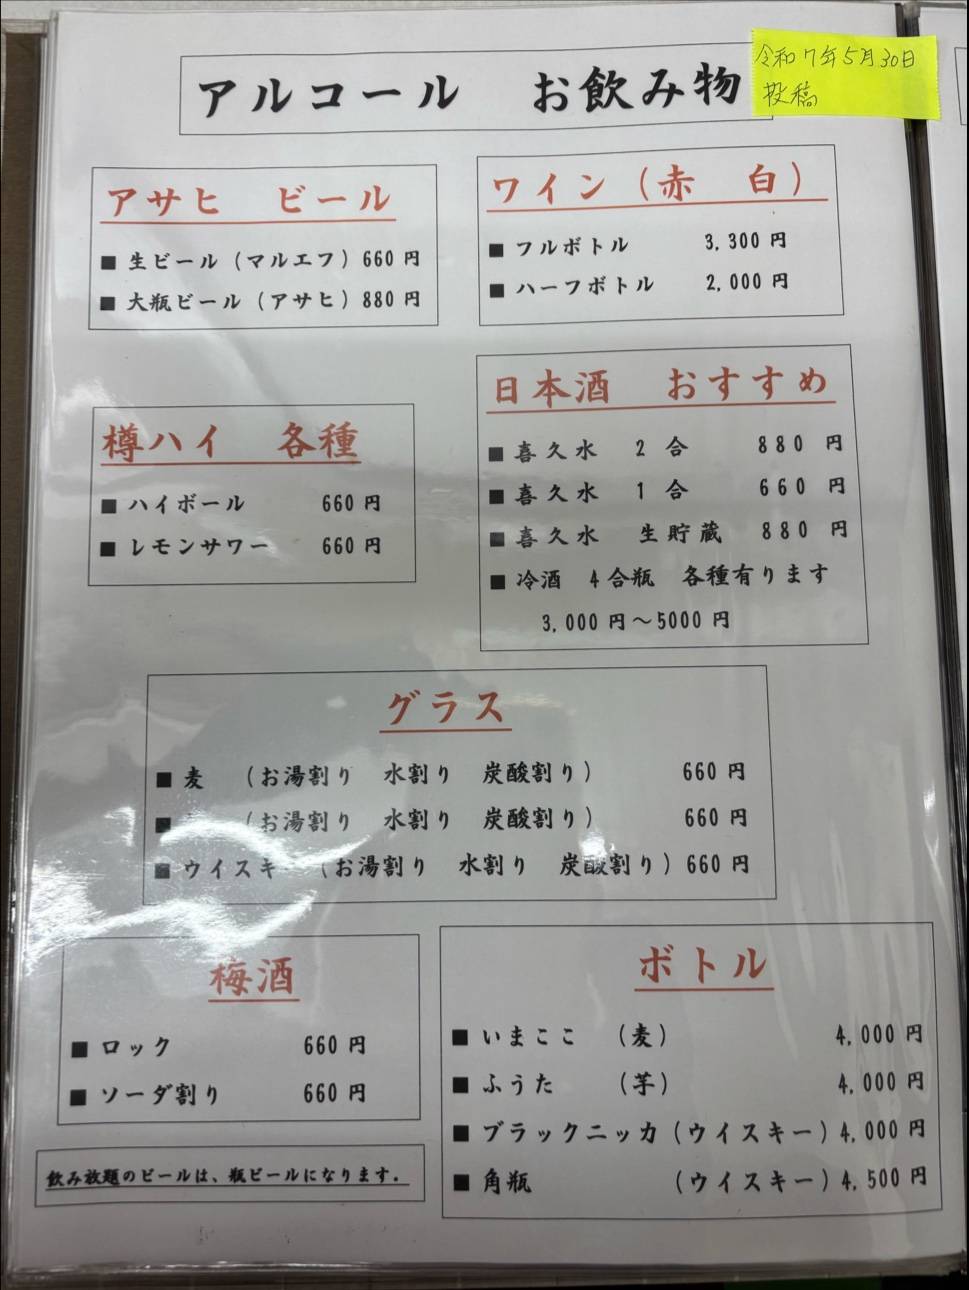 アルコール　お飲み物
令和7年5月30日
投稿
アサヒ　ビール
■ 生ビール（マルエフ）660 円
■ 大瓶ビール（アサヒ）880 円
ワイン（赤　白）
■ フルボトル　3,300 円
■ ハーフボトル　2,000 円
樽ハイ　各種
■ ハイボール　660 円
■ レモンサワー　660 円
日本酒　おすすめ
■ 喜久水　2 合　880 円
■ 喜久水　1 合　660 円
■ 喜久水　生貯蔵　880 円
■ 冷酒　4 合瓶　各種有ります
3,000 円～5000 円
グラス
■ 麦　（お湯割り　水割り　炭酸割り）　660 円
■ （お湯割り　水割り　炭酸割り）　660 円
■ ウイスキー（お湯割り　水割り　炭酸割り）660 円
梅酒
■ ロック　660 円
■ ソーダ割り　660 円
飲み放題のビールは、瓶ビールになります.
ボトル
■ いまここ　（麦）　4,000 円
■ ふうた　（芋）　4,000 円
■ ブラックニッカ（ウイスキー）4,000 円
■ 角瓶　（ウイスキー）4,500 円